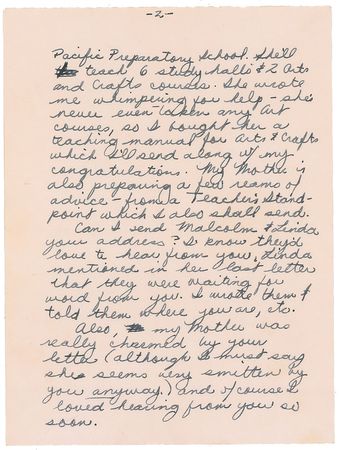 -2-
Pacific Preparatory School. She'll
teach 6 study halls & 2 Arts
and Crafts courses. She wrote
me whimpering for help - she's
never even taken any Art
courses, so I bought her a
teaching manual for Arts & Crafts
which I'll send along w/ my
congratulations. My Mother is
also preparing a few reams of
advice - from a Teacher's Stand-
point which I also shall send.
Can I send Malcolm & Linda
your address? I know they'd
love to hear from you, Linda
mentioned in her last letter
that they were waiting for
word from you. I wrote them &
told them where you are, etc.
Also, my Mother was
really charmed by your
letter (although I must say
she seems very smitten by
you anyway.) and o/course I
loved hearing from you so
soon.